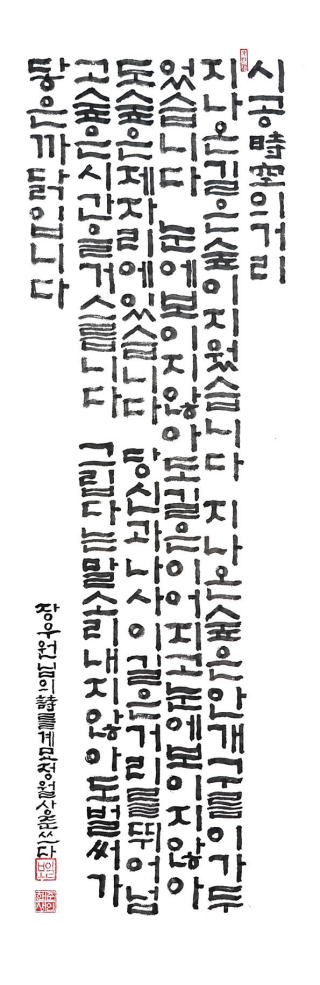 시공時空의거리
지나온길은숲이지웠습니다 지나온숲은안개구름이가두
었습니다 눈에보이지않아도길은이어지고눈에보이지않아
도숲은제자리에있습니다 당신과나사이길은거리를뛰어넘
고숲은시간을거스릅니다 그립다는말소리내지않아도벌써가
닿은까닭입니다
장우원님의詩를계묘정월상준쓰다